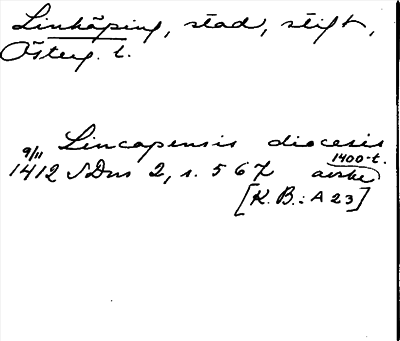 Linköping, stad, stift,
Österg. l.
Lincopensis diocesis
9/11 1400-t.
1412 SDns 2, s. 567 avskr
[K. B.: A 23]